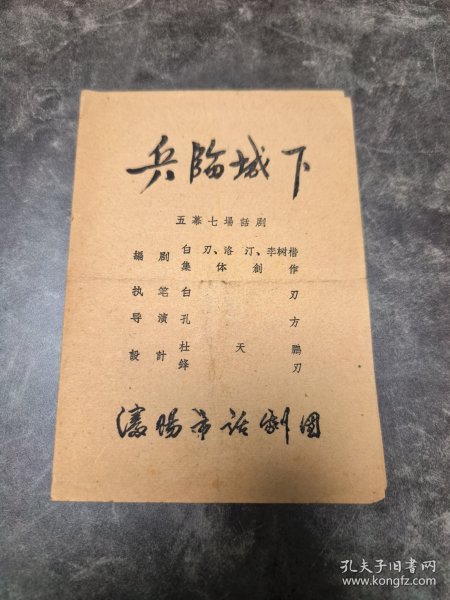 兵临城下
五幕七場話剧
編剧 白刃、洛汀、李树楷
集体創作
执笔 白刃
导演 孔方
設計 杜天鵬
鋒刃
瀋陽市话剧团
孔夫子旧书网
www.kongfz.com